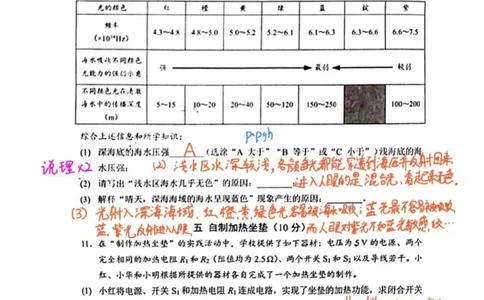 光的颜色 红 橙 黄 绿 蓝 靛 紫
频率
(×10¹⁴Hz) 4.3~4.8 4.8~5.0 5.0~5.2 5.2~6.1 6.1~6.3 6.3~6.6 6.6~7.5
海水吸收不同颜色
光能力的强弱示意 强 最弱 较弱
不同颜色光在清澈
海水中的传播深度
(m) 5~15 10~20 20~40 50~120 150~250 100~200
综合上述信息和所学知识:
p=ρgh
(1) 深海底的海水压强 A (选涂“A 大于”“B 等于”或“C 小于”)浅海底的海
说理×2 水压强;
(2) 浅水区水深较浅,各种色光都能穿透到海底并反射回来
(2) 请写出“浅水区海水几乎无色”的原因: 进入人眼的是混合光,看起来无色。
(3) 解释“晴天,深海海域的海水呈现蓝色”现象的原因:
(3) 光射入深海海域,红、橙、黄、绿色光容易被海水吸收;蓝光最不容易被吸收
蓝、紫光反射进入人眼 而人眼对紫光不如蓝光敏感
五 自制加热坐垫(10分)
11. 在“制作加热坐垫”的实践活动中,学校提供了如下器材:电压为5V的电源、两个
完全相同的加热电阻 R₁ 和 R₂(阻值均为2.5Ω)、两个开关 S₁ 和 S₂ 以及导线若干。小
红、小华和小明根据所提供的器材各自完成了一个加热坐垫的制作。
(1) 小红将电源、开关 S₁ 和加热电阻 R₁ 连成电路,实现了坐垫的加热功能,求闭合开关